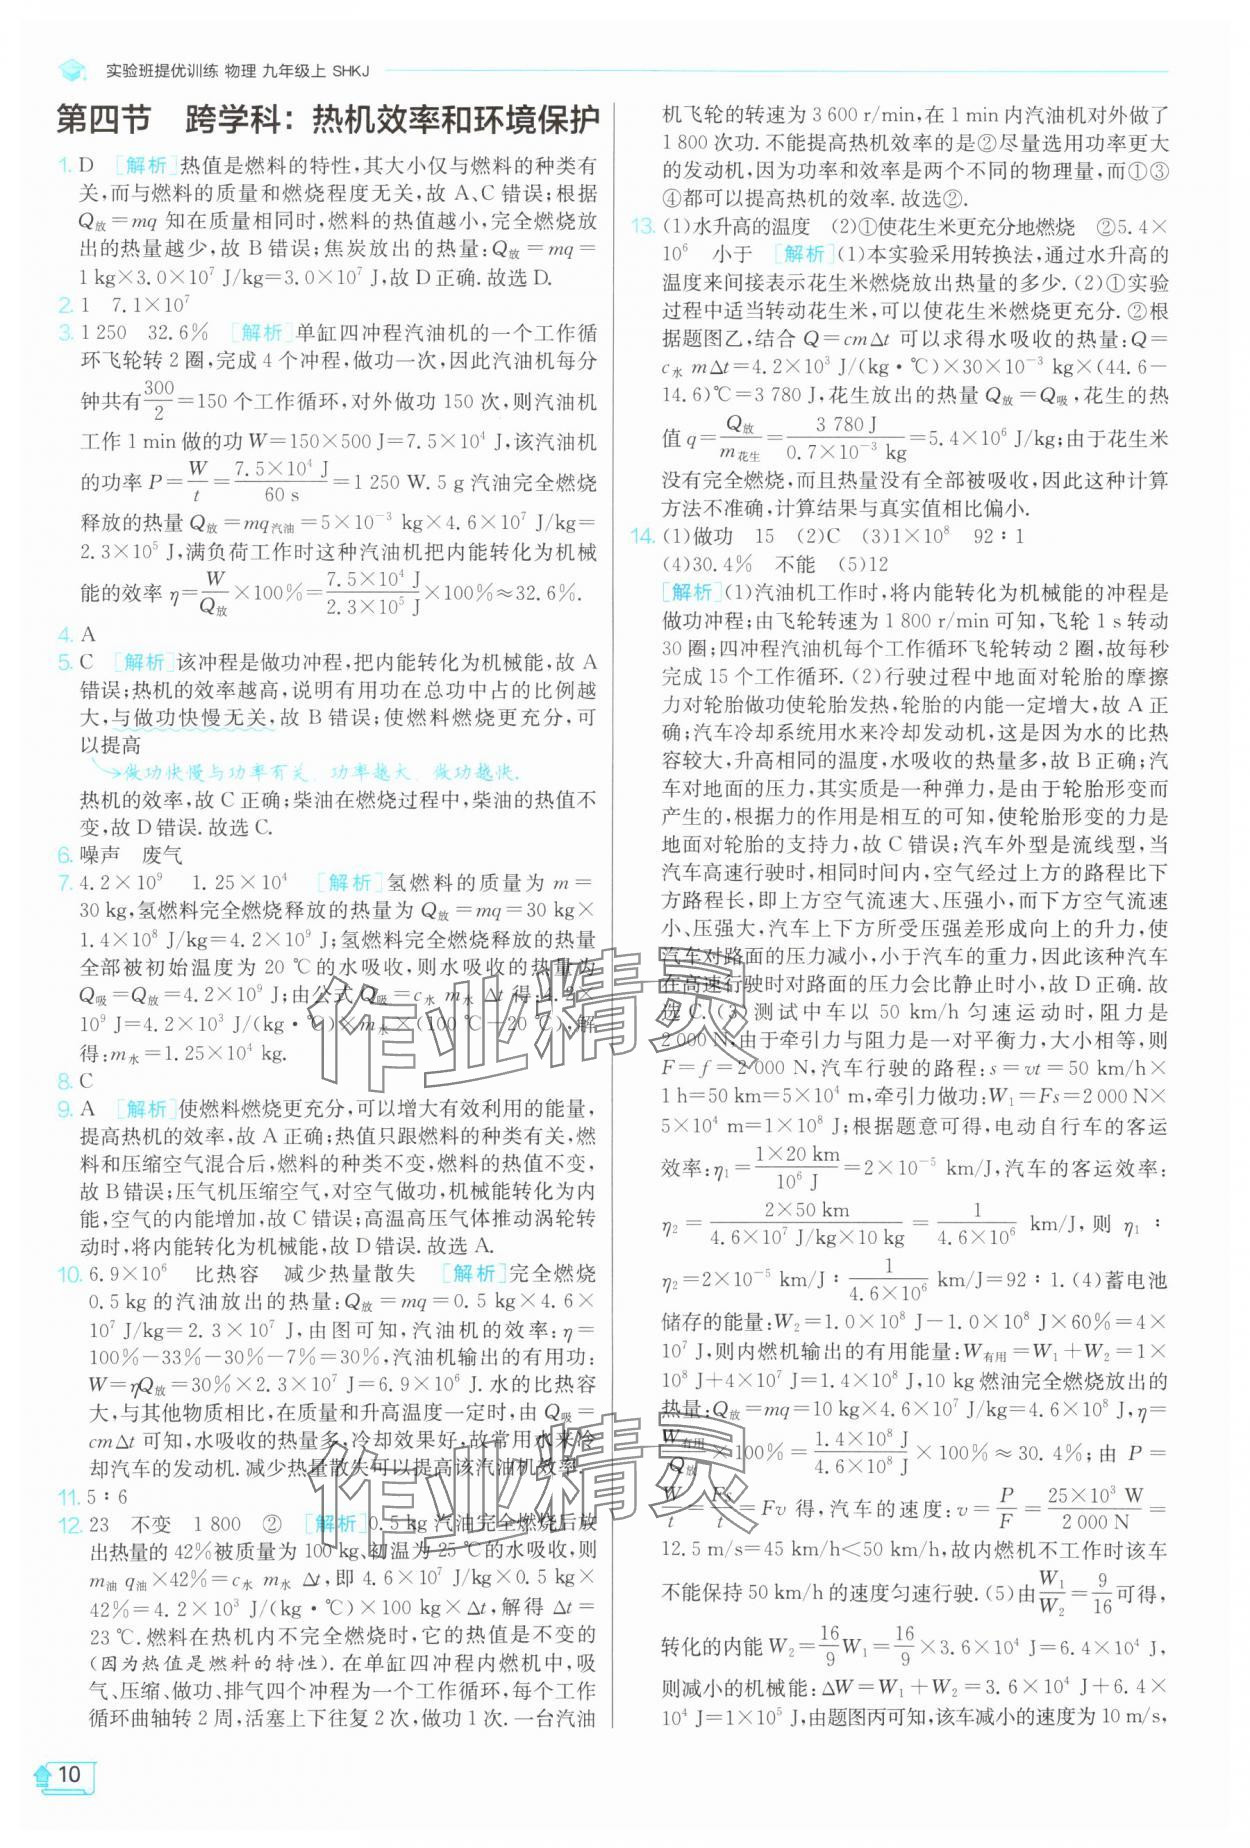 实验班提优训练 物理 九年级上 SHKJ
第四节　跨学科：热机效率和环境保护
1. D　[解析]热值是燃料的特性,其大小仅与燃料的种类有
关,而与燃料的质量和燃烧程度无关,故 A、C 错误;根据
Q放=mq 知在质量相同时,燃料的热值越小,完全燃烧放
出的热量越少,故 B 错误;焦炭放出的热量:Q放=mq=
1 kg×3.0×10⁷ J/kg=3.0×10⁷ J,故 D 正确.故选 D.
2. 1　7.1×10⁷
3. 1 250　32.6%　[解析]单缸四冲程汽油机的一个工作循
环飞轮转 2 圈,完成 4 个冲程,做功一次,因此汽油机每分
钟共有300/2=150 个工作循环,对外做功 150 次,则汽油机
工作 1 min 做的功 W=150×500 J=7.5×10⁴ J,该汽油机
的功率 P=W/t=7.5×10⁴ J/60 s=1 250 W.5 g 汽油完全燃烧
释放的热量 Q放=mq汽油=5×10⁻³ kg×4.6×10⁷ J/kg=
2.3×10⁵ J,满负荷工作时这种汽油机把内能转化为机械
能的效率 η=W/Q放×100%=7.5×10⁴ J/2.3×10⁵ J×100%≈32.6%.
4. A
5. C　[解析]该冲程是做功冲程,把内能转化为机械能,故 A
错误;热机的效率越高,说明有用功在总功中占的比例越
大,与做功快慢无关,故 B 错误;使燃料燃烧更充分,可
以提高
做功快慢与功率有关，功率越大，做功越快.
热机的效率,故 C 正确;柴油在燃烧过程中,柴油的热值不
变,故 D 错误.故选 C.
6. 噪声　废气
7. 4.2×10⁹　1.25×10⁴　[解析]氢燃料的质量为 m=
30 kg,氢燃料完全燃烧释放的热量为 Q放=mq=30 kg×
1.4×10⁸ J/kg=4.2×10⁹ J;氢燃料完全燃烧释放的热量
全部被初始温度为 20 ℃的水吸收,则水吸收的热量为
Q吸=Q放=4.2×10⁹ J;由公式 Q吸=c水 m水 Δt 得:4.2×
10⁹ J=4.2×10³ J/(kg·℃)×m水×(100 ℃-20 ℃),解
得:m水=1.25×10⁴ kg.
8. C
9. A　[解析]使燃料燃烧更充分,可以增大有效利用的能量,
提高热机的效率,故 A 正确;热值只跟燃料的种类有关,燃
料和压缩空气混合后,燃料的种类不变,燃料的热值不变,
故 B 错误;压气机压缩空气,对空气做功,机械能转化为内
能,空气的内能增加,故 C 错误;高温高压气体推动涡轮转
动时,将内能转化为机械能,故 D 错误.故选 A.
10. 6.9×10⁶　比热容　减少热量散失　[解析]完全燃烧
0.5 kg 的汽油放出的热量:Q放=mq=0.5 kg×4.6×
10⁷ J/kg=2.3×10⁷ J,由图可知,汽油机的效率:η=
100%-33%-30%-7%=30%,汽油机输出的有用功:
W=ηQ放=30%×2.3×10⁷ J=6.9×10⁶ J.水的比热容
大,与其他物质相比,在质量和升高温度一定时,由 Q吸=
cmΔt 可知,水吸收的热量多,冷却效果好,故常用水来冷
却汽车的发动机.减少热量散失可以提高该汽油机效率.
11. 5∶6
12. 23　不变　1 800　②　[解析]0.5 kg 汽油完全燃烧后放
出热量的 42%被质量为 100 kg、初温为 25 ℃的水吸收,则
m油 q油×42%=c水 m水 Δt,即 4.6×10⁷ J/kg×0.5 kg×
42%=4.2×10³ J/(kg·℃)×100 kg×Δt,解得 Δt=
23 ℃.燃料在热机内不完全燃烧时,它的热值是不变的
(因为热值是燃料的特性).在单缸四冲程内燃机中,吸
气、压缩、做功、排气四个冲程为一个工作循环,每个工作
循环曲轴转 2 周,活塞上下往复 2 次,做功 1 次.一台汽油
机飞轮的转速为 3 600 r/min,在 1 min 内汽油机对外做了
1 800 次功.不能提高热机效率的是②尽量选用功率更大
的发动机,因为功率和效率是两个不同的物理量,而①③
④都可以提高热机的效率.故选②.
13. (1)水升高的温度　(2)①使花生米更充分地燃烧　②5.4×
10⁶　小于　[解析](1)本实验采用转换法,通过水升高的
温度来间接表示花生米燃烧放出热量的多少.(2)①实验
过程中适当转动花生米,可以使花生米燃烧更充分.②根
据题图乙,结合 Q=cmΔt 可以求得水吸收的热量:Q=
c水 mΔt=4.2×10³ J/(kg·℃)×30×10⁻³ kg×(44.6-
14.6)℃=3 780 J,花生放出的热量 Q放=Q吸,花生的热
值 q=Q放/m花生=3 780 J/0.7×10⁻³ kg=5.4×10⁶ J/kg;由于花生米
没有完全燃烧,而且热量没有全部被吸收,因此这种计算
方法不准确,计算结果与真实值相比偏小.
14. (1)做功　15　(2)C　(3)1×10⁸　92∶1
(4)30.4%　不能　(5)12
[解析](1)汽油机工作时,将内能转化为机械能的冲程是
做功冲程;由飞轮转速为 1 800 r/min 可知,飞轮 1 s 转动
30 圈;四冲程汽油机每个工作循环飞轮转动 2 圈,故每秒
完成 15 个工作循环.(2)行驶过程中地面对轮胎的摩擦
力对轮胎做功使轮胎发热,轮胎的内能一定增大,故 A 正
确;汽车冷却系统用水来冷却发动机,这是因为水的比热
容较大,升高相同的温度,水吸收的热量多,故 B 正确;汽
车对地面的压力,其实质是一种弹力,是由于轮胎形变而
产生的,根据力的作用是相互的可知,使轮胎形变的力是
地面对轮胎的支持力,故 C 错误;汽车外型是流线型,当
汽车高速行驶时,相同时间内,空气经过上方的路程比下
方路程长,即上方空气流速大、压强小,而下方空气流速
小、压强大,汽车上下方所受压强差形成向上的升力,使
汽车对路面的压力减小,小于汽车的重力,因此该种汽车
在高速行驶时对路面的压力会比静止时小,故 D 正确.故
选 C.(3)测试中车以 50 km/h 匀速运动时,阻力是
2 000 N;由于牵引力与阻力是一对平衡力,大小相等,则
F=f=2 000 N,汽车行驶的路程:s=vt=50 km/h×
1 h=50 km=5×10⁴ m,牵引力做功:W₁=Fs=2 000 N×
5×10⁴ m=1×10⁸ J;根据题意可得,电动自行车的客运
效率:η₁=1×20 km/10⁶ J=2×10⁻⁵ km/J,汽车的客运效率:
η₂=2×50 km/4.6×10⁷ J/kg×10 kg=1/4.6×10⁶ km/J,则 η₁∶
η₂=2×10⁻⁵ km/J∶1/4.6×10⁶ km/J=92∶1.(4)蓄电池
储存的能量:W₂=1.0×10⁸ J-1.0×10⁸ J×60%=4×
10⁷ J,则内燃机输出的有用能量:W有用=W₁+W₂=1×
10⁸ J+4×10⁷ J=1.4×10⁸ J,10 kg 燃油完全燃烧放出的
热量:Q放=mq=10 kg×4.6×10⁷ J/kg=4.6×10⁸ J,η=
W有用/Q放×100%=1.4×10⁸ J/4.6×10⁸ J×100%≈30.4%;由 P=
W/t=Fs/t=Fv 得,汽车的速度:v=P/F=25×10³ W/2 000 N=
12.5 m/s=45 km/h<50 km/h,故内燃机不工作时该车
不能保持 50 km/h 的速度匀速行驶.(5)由W₁/W₂=9/16可得,
转化的内能 W₂=16/9W₁=16/9×3.6×10⁴ J=6.4×10⁴ J,
则减小的机械能:ΔW=W₁+W₂=3.6×10⁴ J+6.4×
10⁴ J=1×10⁵ J,由题图丙可知,该车减小的速度为 10 m/s,
作业精灵
作业精灵
10